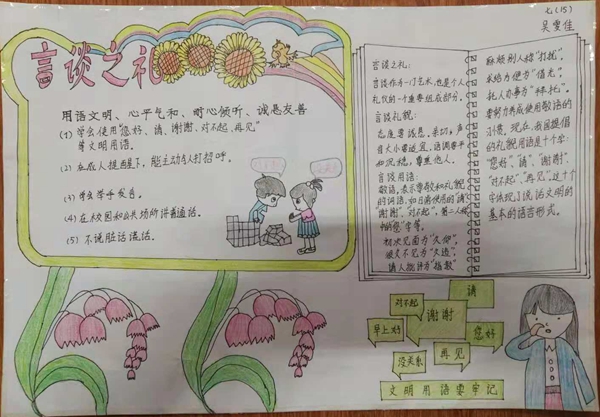 七(15)
吴雯佳
言谈之礼
用语文明、心平气和、耐心倾听、诚恳友善
(1) 学会使用“您好、请、谢谢、对不起、再见”
等文明用语。
(2) 在成人提醒下，能主动与人打招呼。
(3) 学会举手发言。
(4) 在校园和公共场所讲普通话。
(5) 不说脏话谎话。
对不起
没关系
言谈之礼：
言谈作为一门艺术，也是个人
礼仪的一个重要组成部分。
言谈礼貌：
态度要诚恳、亲切，声
音大小要适宜，语调要平
和沉稳，尊重他人。
言谈用语：
敬语，表示尊敬和礼貌
的词语。如日常使用的“请”
“谢谢”、“对不起”，第二人称
中的“您”字等。
初次见面为“久仰”，
很久不见为“久违”，
请人批评为“指教”
麻烦别人称“打扰”，
求给方便为“借光”，
托人办事为“拜托”。
要努力养成使用敬语的
习惯。现在，我国提倡
的礼貌用语是十个字：
“您好”、“请”、“谢谢”、
“对不起”、“再见”。这十个
字体现了说话文明的
基本的语言形式。
请
对不起
谢谢
早上好
您好
没关系
再见
文明用语要牢记